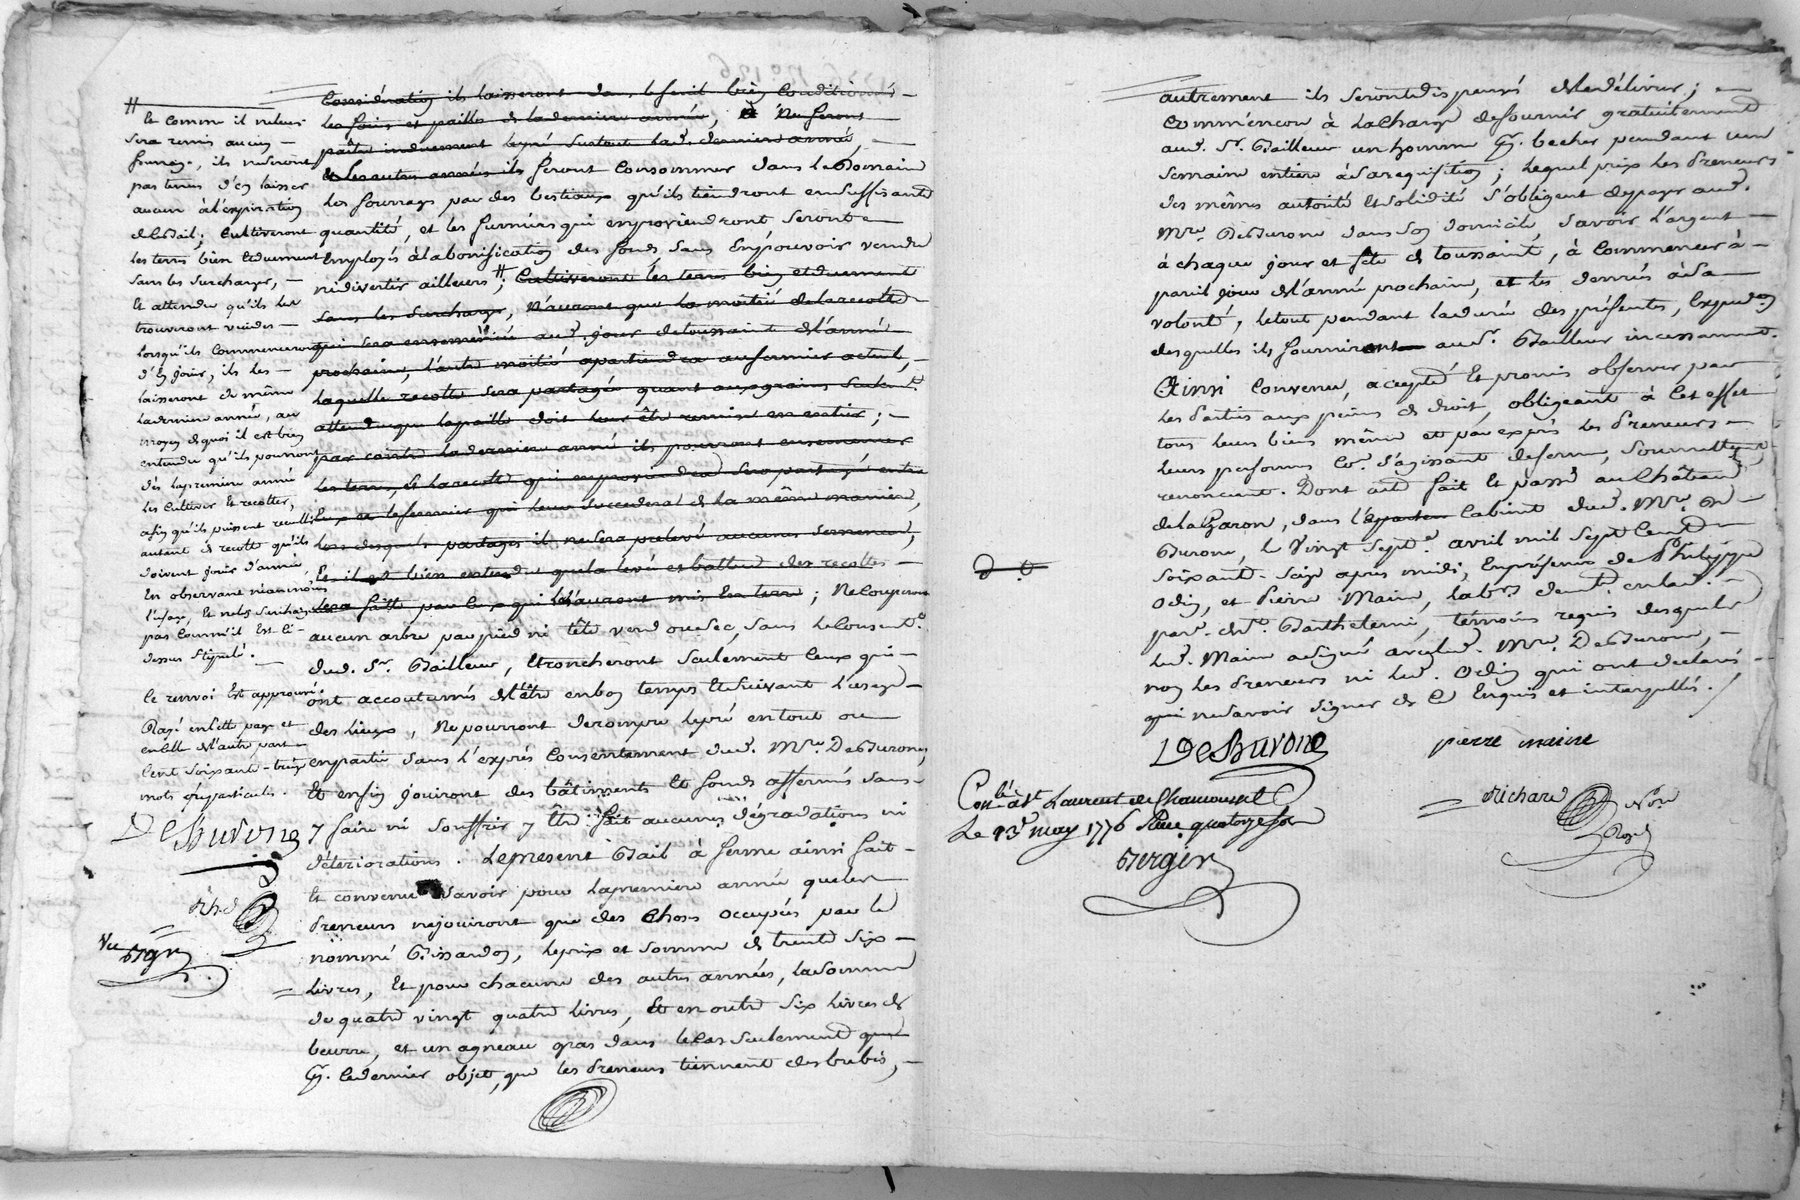 Considération ils laisseront dans le fenil bien Conditionnés
les foins et pailles de la derniere année, Ne feront
paître induement le pré surtout lad. derniere année,
et les autres années ils feront Consommer dans le Domaine
les fourrages par des bestiaux qu'ils tiendront en suffisante
quantité, et les fumiers qui en proviendront seront
Employés à la bonification des fonds sans En pouvoir vendre
ni divertir ailleurs #; Cultiveront les terres bien et duement
sans les surcharger, N'auront que la moitié de la recolte
qui sera ensemencée aud. jour de toussaint de l'année
prochaine, l'autre moitié apartiendra au fermier actuel,
laquelle recolte sera partagée quant aux grains seulemt.
attendu que la paille doit leur être remise en entier;
par contre la derniere année ils pourront ensemencer
les terres, Et la recolte qui en proviendra sera partagée entre
Eux et le fermier qui leur succedera de la même maniere,
lors desquels partages il ne sera prelevé aucunes semences,
Et il est bien entendu que la levée et batture des recoltes
sera faitte par Ceux qui les auront mis En terre; Ne Couperont
aucun arbre par pied ni tête verd ou sec, sans le Consentt.
dud. Sr. Bailleur, Etroncheront seulement Ceux qui
ont accoutumés de l'être en bon temps Et suivant l'usage
des lieux, Ne pourront derompre le pré en tout ou
en partie sans l'exprés Consentement dud. Mre. DesBurons,
Et enfin jouiront des bâtiments Et fonds affermés sans
y faire ni souffrir y être fait aucunes dégradations ni
déteriorations. Le present Bail à ferme ainsi fait
Et convenu savoir pour la premiere année que les
Preneurs ne jouiront que des Choses occupées par le
nommé Bissardon, le prix et somme de trente six
livres, Et pour chacune des autres années, la somme
de quatre vingt quatre livres, Et en outre six livres de
beurre, et un agneau gras dans le Cas seulement
Ce dernier objet, que les Preneurs tiennent des brebis,
#
Et Comme il ne leur
sera remis aucun
fourrage, ils ne seront
pas tenus d'en laisser
aucun à l'expiration
de Bail; Cultiveront
les terres bien Et duement
sans les surcharger,
Et attendu qu'ils les
trouveront vuides
lorsqu'ils Commenceront
d'En jouir, ils les
laisseront de même
la derniere année, au
moyen de quoi il est bien
entendu qu'ils pourront
dès la premiere année
les Cultiver Et recolter,
afin qu'ils puissent recueillir
autant de recolte qu'ils
doivent jouir d'année,
En observant néanmoins
l'usage, Et ne les surchargeant
pas Comme il Est Ci-
dessus stipulé.
Ce renvoi Est approuvé.
Rayé en Cette page et
en Celle de l'autre part
Cent soixante-treize
mots
DesBurons
Rhd
Vu
autrement ils seront dispensés de le délivrer;
Commencon à la Charge de fournir gratuitement
aud. Sr. Bailleur un homme pr. becher pendant une
semaine entiere à sa requisition; lequel prix les Preneurs
des mêmes autorité Et solidité s'obligent de payer aud.
Mre. DesBurons dans son domicile, savoir l'argent
à chaque jour et fête de toussaint, à Commencer à
pareil jour de l'année prochaine, et les denrées à sa
volonté, le tout pendant la durée des présentes, Expedon
desquelles ils fourniront aud. Sr. Bailleur incessammt.
Ainsi Convenu, accepté Et promis observer par
les Parties aux peines de droit, obligeant à Cet effet
tous leurs biens même et par exprés les Preneurs
leurs personnes Co. s'agissant de ferme, soumettent
renoncent. Dont acte fait Et passé au Château
de la Garon, dans Cabinet dud. Mre. Des
Burons, le Vingt Septe. avril mil Sept Cent
soixante-seize après midi, En présence de Philippe
Odin, et Pierre Maire, labrs. demts. en lad.
parse. de St. Barthelemi, témoins requis desquels
led. Maire a signé avec led. Mre. DesBurons,
non les Preneurs ni led. Odin qui ont declarés
ne savoir signer de Ce Enquis et interpellés.
DesBurons
pierre maire
Conlé à St. Laurent de Chamousset
Le 13e may 1776 Reçu quatorze sols
Berger
Richard
Nore
Royal